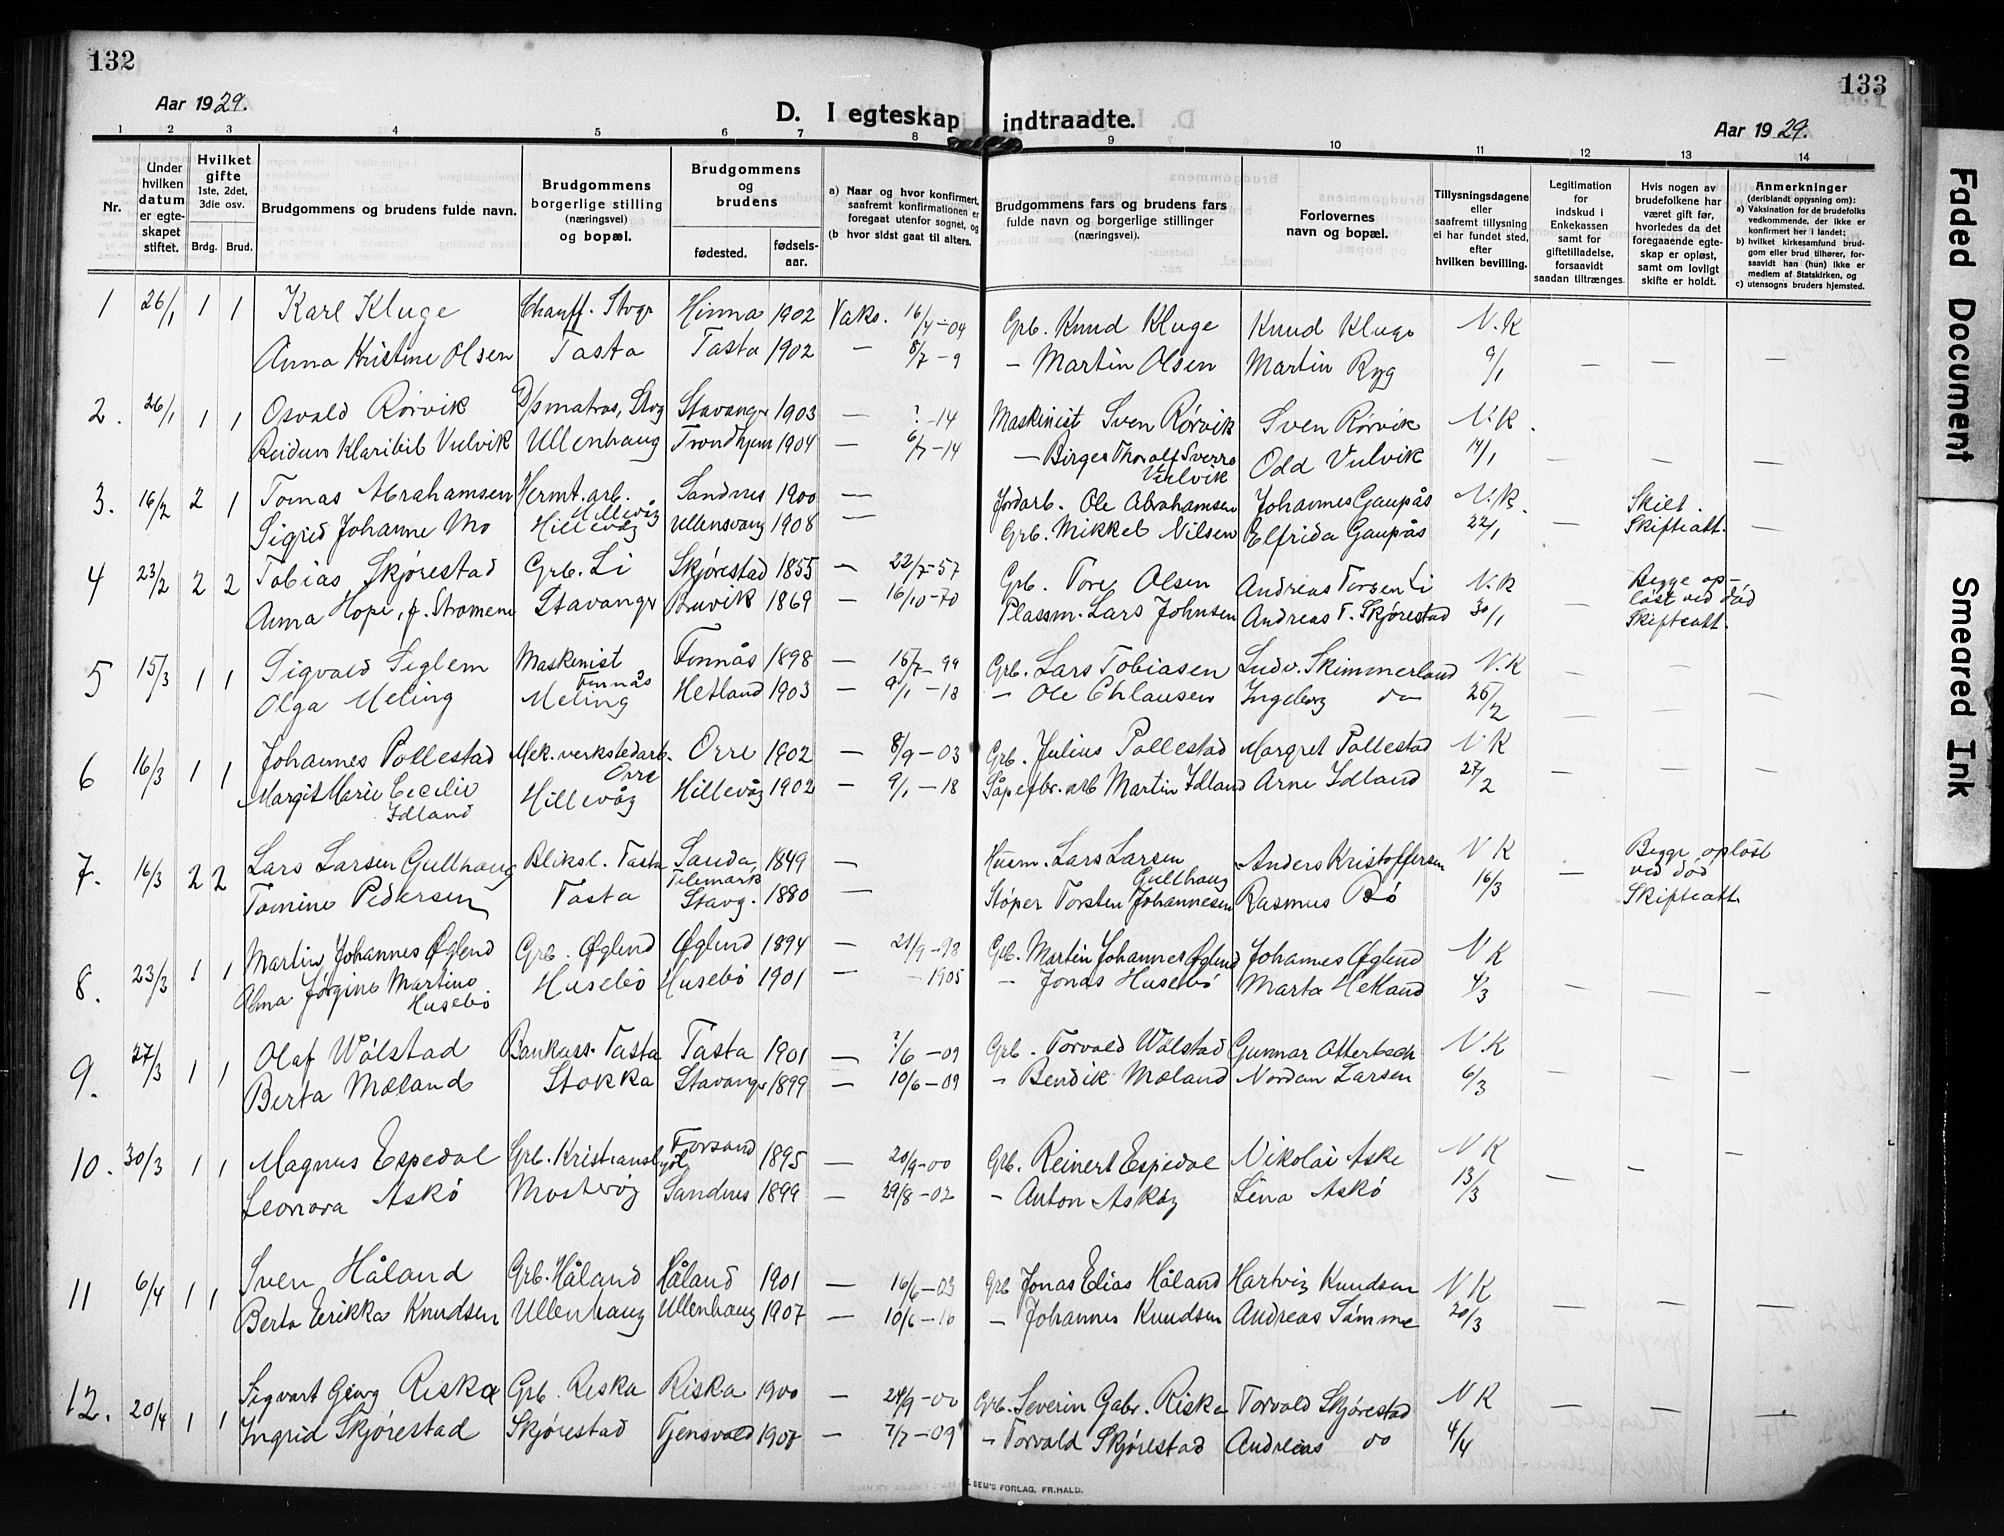 132
133
Aar 1929.
D. I egteskap indtraadte.
Aar 1929.
1 2 3 4 5 6 7 8 9 10 11 12 13 14
Nr.
Under hvilken datum er egteskapet stiftet.
Hvilket gifte 1ste, 2det, 3die osv.
Brdg. Brud.
Brudgommens og brudens fulde navn.
Brudgommens borgerlige stilling (næringsvei) og bopæl.
Brudgommens og brudens
fødested.
fødselsaar.
a) Naar og hvor konfirmert, saafremt konfirmationen er foregaat utenfor sognet, og
(b hvor sidst gaat til alters.
Brudgommens fars og brudens fars fulde navn og borgerlige stillinger (næringsvei).
Forlovernes navn og bopæl.
Tillysningsdagene eller saafremt tillysning ei har fundet sted, efter hvilken bevilling.
Legitimation for indskud i Enkekassen samt for giftetilladelse, forsaavidt saadan tiltrænges.
Hvis nogen av brudefolkene har været gift før, hvorledes da det foregaaende egteskap er opløst, samt om lovligt skifte er holdt.
Anmerkninger (deriblandt opysning om):
a) Vaksination for de brudefolks vedkommende, der ikke er konfirmert her i landet;
b) hvilket kirkesamfund brudgom eller brud tilhører, forsaavidt han (hun) ikke er medlem af Statskirken, og
c) utensogns bruders hjemsted.
1 26/1 1 1 Karl Kluge Chauff. Stvgr Hinna 1902 Vaks. 16/4-04 Grb. Knud Kluge Knud Kluge N.K
Anna Kristine Olsen Tasta Tasta 1902 — 8/7-9 — Martin Olsen Martin Ryg 9/1 — — —
2. 26/1 1 1 Osvald Rørvik D/smatros, Stvg Stavangr 1903 — ?-14 Maskinist Sven Rørvik Sven Rørvik N.K.
Reidun Klaribil Vulvik Ullenhaug Trondhjem 1904 — 6/7-14 — Birger Thoralf Sverre Vulvik Odd Vulvik 14/1 —
3. 16/2 2 1 Tomas Abrahamsen Hermt.arb. Hillevåg Sandnes 1900 — Jordarb. Ole Abrahamsen Johannes Gaupås N.K. Skilt.
Sigrid Johanne Mo Hillevåg Ullensvang 1908 — Grb. Mikkel Nilsen Elfrida Gaupås 22/1 — Skifteatt. —
4 23/2 2 2 Tobias Skjørestad Grb. Li Skjørestad 1855 — 22/7-57 Grb. Tore Olsen Andreas Torsen Li N.K Begge op-
Anna Hope, f. Stromene Stavangr Bruvik 1869 — 16/10-70 Plassm. Lars Johnsen Andreas T. Skjørestad 30/1 — løst ved død
Skifteatt.
5 15/3 1 1 Sigvald Siglem Maskinist Finnås Finnås 1898 — 15/7-99 Grb. Lars Tobiasen Ludv. Skimmerland N.K
Olga Meling Meling Hetland 1903 — 9/1-18 — Ole Chlausen Ingeborg do 25/2 — — —
6 16/3 1 1 Johannes Pollestad Mek. verkstedarb. Orre Orre 1902 — 8/9-03 Grb. Julius Pollestad Margret Pollestad N K
Margit Marie Cecilie Idland Hillevåg Hillevåg 1902 — 9/1-18 Såpefbr. arb Martin Idland Arne Idland 27/2 — — —
7. 16/3 2 2 Lars Larsen Gullhaug Bliksl. Tasta Sauda Telemark 1849 — Husm. Lars Larsen Gullhaug Anders Kristoffersen N K Begge opløst
Tomine Pedersen Tasta Stavg. 1880 — Støper Torsten Johannesen Rasmus Bø 16/3 — ved død
Skifteatt
8. 23/3 1 1 Martin Johannes Øglend Grb. Øglend Øglend 1894 — 21/9-98 Grb. Martin Johannes Øglend Johannes Øglend N K
Alma Jørgine Martine Husebø Husebø Husebø 1901 — -1905 — Jonas Husebø Marta Hetland 4/3 — — —
9. 27/3 1 1 Olaf Wølstad Bankass. Tasta Tasta 1901 — ?/6-09 Grb. Torvald Wølstad Gunnar Otterbech N.K
Berta Mæland Stokka Stavangr 1899 — 10/6-09 — Bendik Mæland Nordan Larsen 6/3 — — —
10. 30/3 1 1 Magnus Espedal Grb. Kristianslyst Forsand 1895 — 20/9-00 Grb. Reinert Espedal Nikolai Aske N K
Leonora Askø Mosterøy Sandnes 1899 — 29/8-02 — Anton Askøy Lina Askø 13/3 — — —
11 6/4 1 1 Sven Håland Grb. Håland Håland 1901 — 16/6-03 Grb Jonas Elias Håland Hartvig Knudsen N K
Berta Erikka Knudsen Ullenhaug Ullenhaug 1907 — 10/6-10 — Johannes Knudsen Andreas Sømme 20/3 — — —
12. 20/4 1 1 Sigvart Georg Riska Grb. Riska Riska 1900 — 24/9-00 Grb. Severin Gabr. Riska Torvald Skjørestad N K
Ingrid Skjørestad Skjørestad Tjensvold 1907 — 7/7-09 — Torvald Skjørestad Andreas do 4/4 — — —
SEM'S FORLAG, FR.HALD.
Faded Document
Smeared Ink